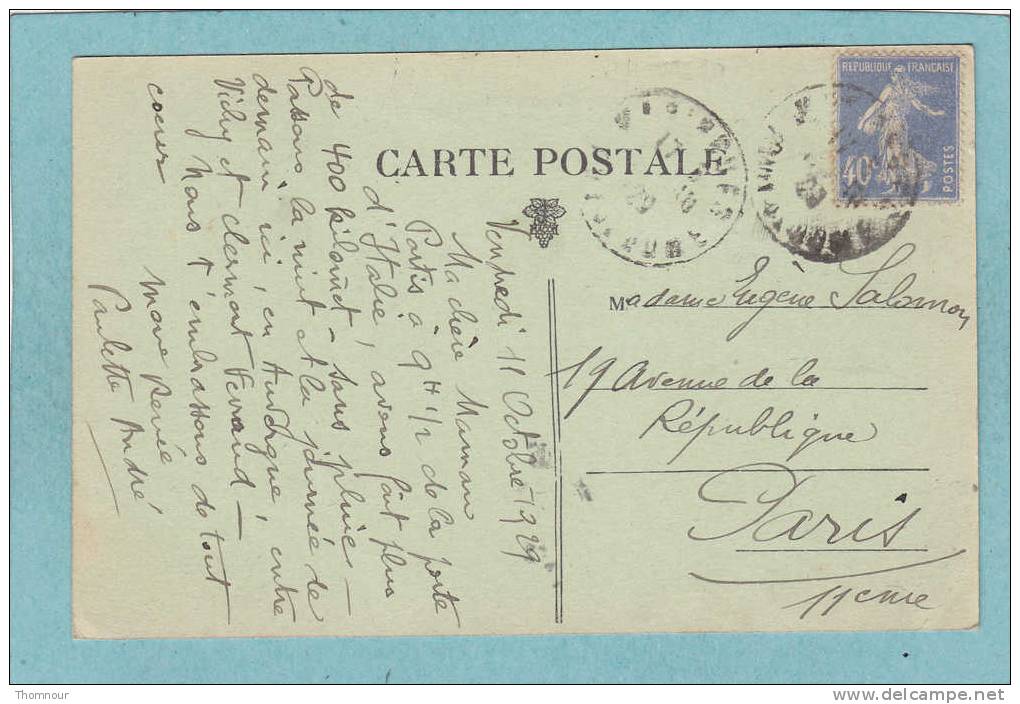 CARTE POSTALE
REPUBLIQUE FRANÇAISE
40c
POSTES
Vendredi 11 Octobre 1929
Ma chère Maman
Partis à 9 H 1/2 de la porte
d'Italie, avons fait plus
de 400 kilomèt - sans pluie -
Passons la nuit et la journée de
demain ici, en Auvergne, entre
Vichy et Clermont Ferrand -
Nous t'embrassons de tout
coeur
Renée
Paulette André
Madame Eugène Salomon
19 Avenue de la
République
Paris
11eme
Thomnour
www.delcampe.net